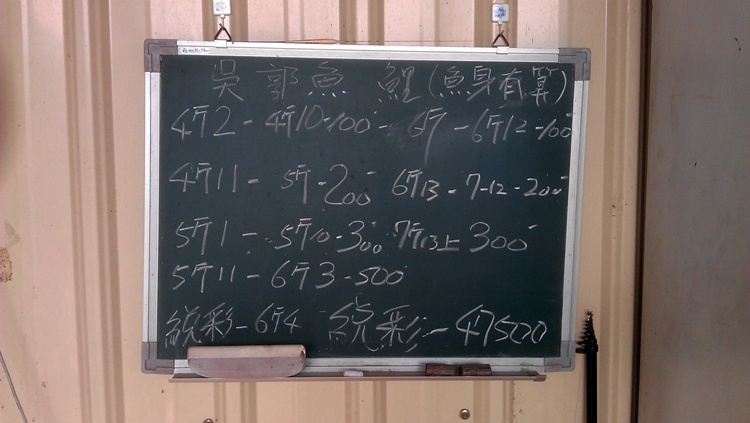 吳郭魚 鯉(魚身有算)
4斤2-4斤10-100- 6斤-6斤12-100
4斤11- 5斤-200 6斤13-7-12-200
5斤1-5斤10-300 7斤13上300
5斤11-6斤3-500
統彩-6斤4 統彩-47500